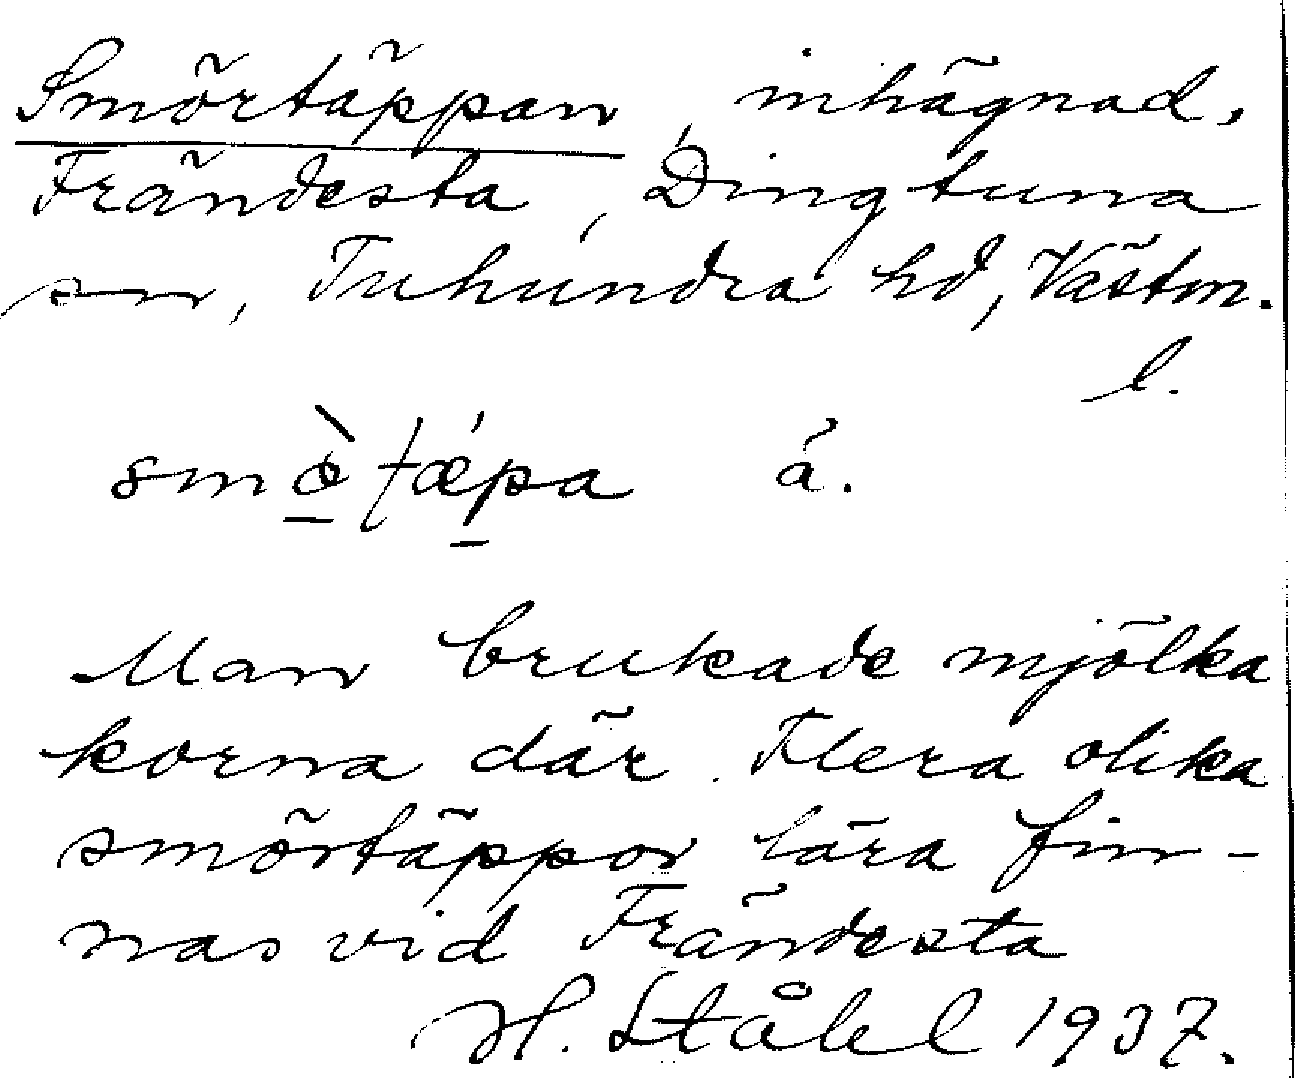 Smörtäppan, inhägnad,
Frändesta, Dingtuna
sn, Tuhundra hd, Västm.
l.
smö̀tǽpa ä.
Man brukade mjölka
korna där. Flera olika
smörtäppor lära fin-
nas vid Frändesta
H. Ståhl 1937.